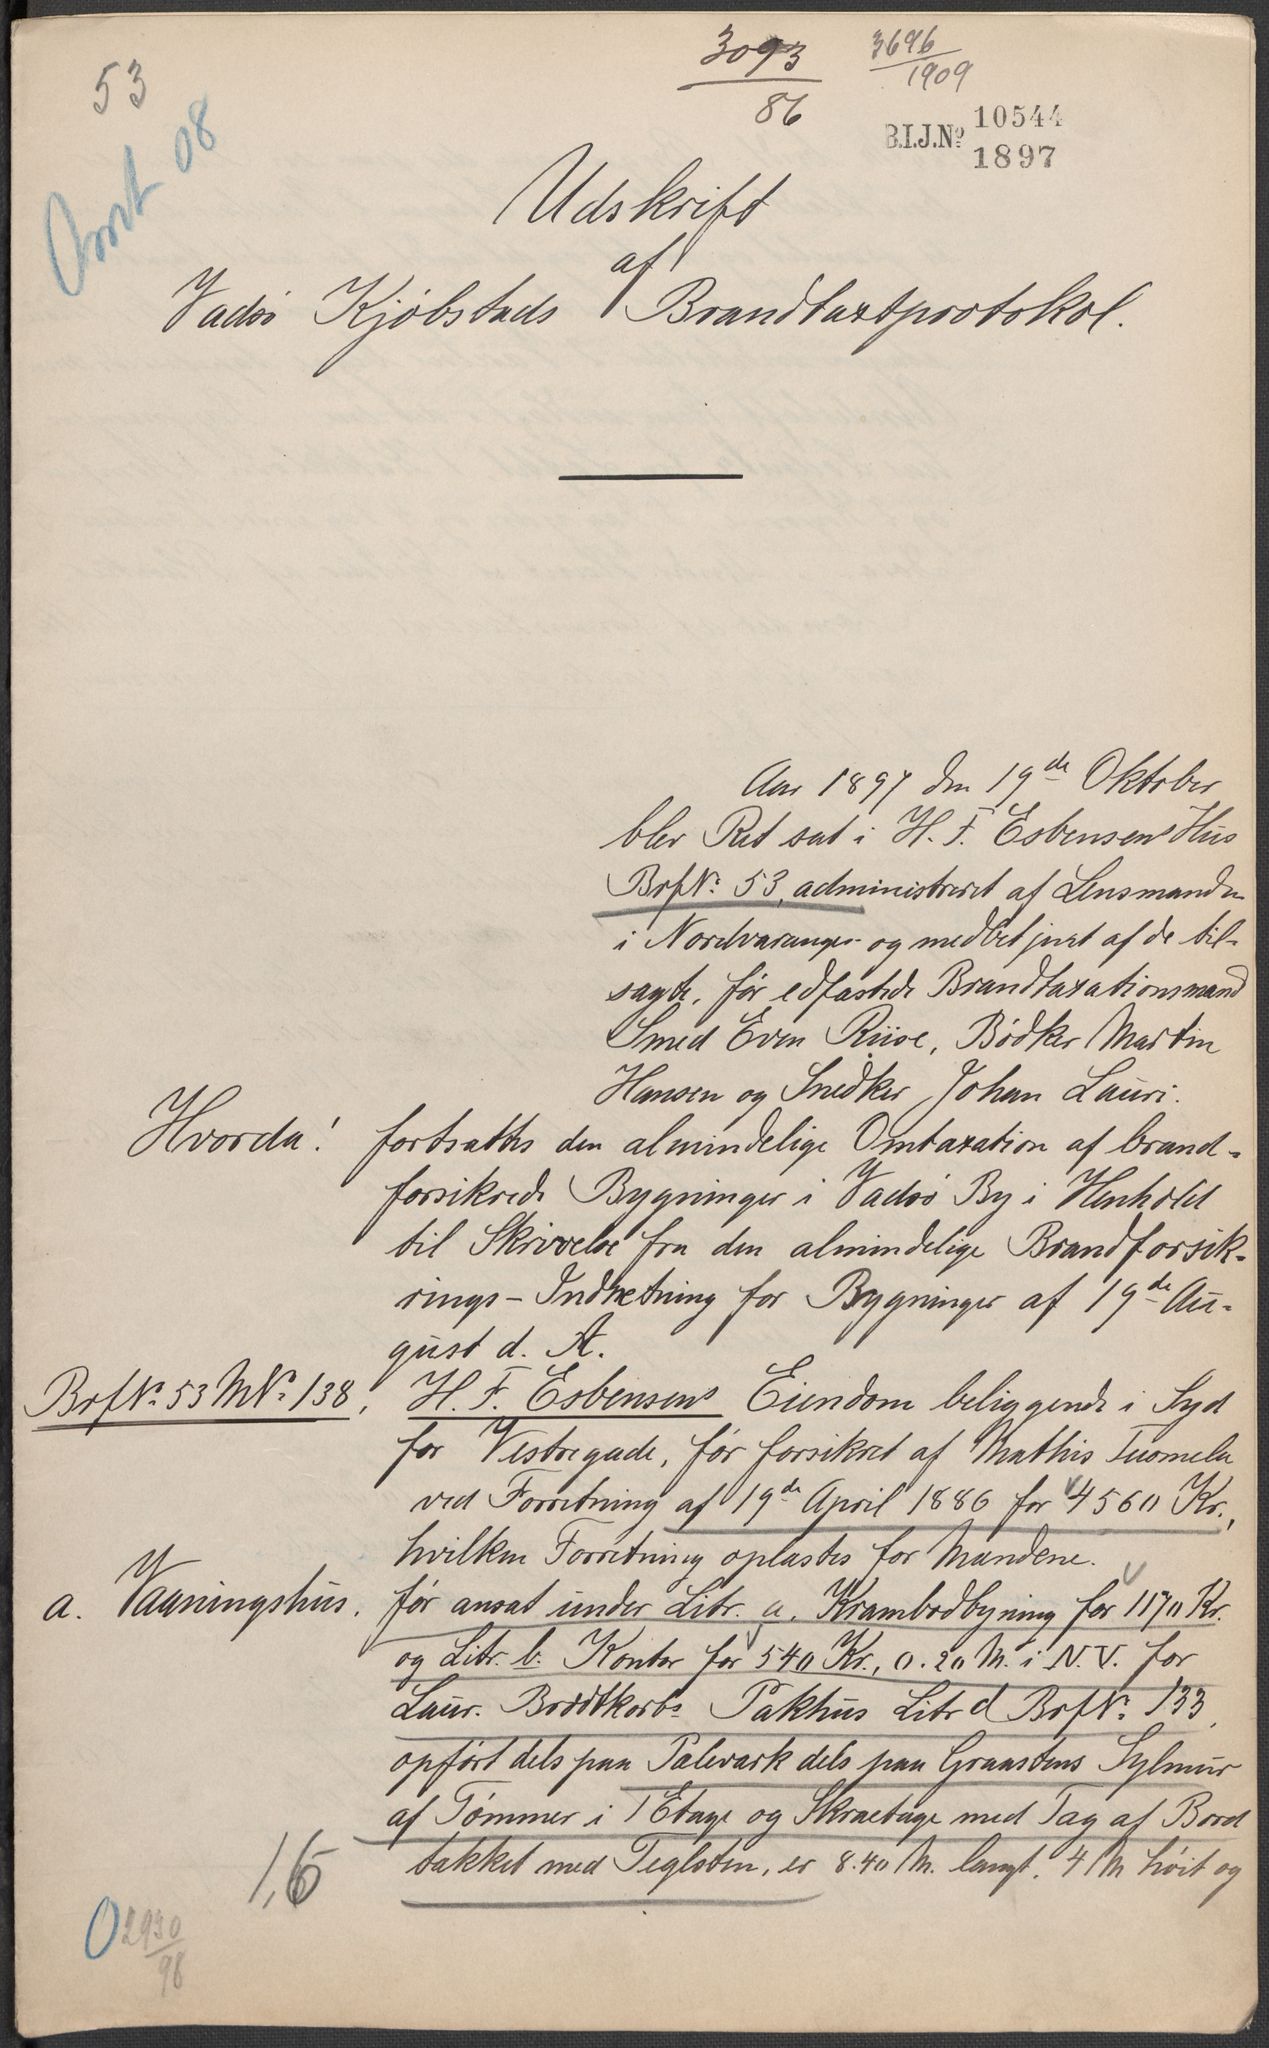 53
3093
86
3696
1909
B.I.J.No 10544
1897
08
Udskrift
af
Vadsø Kjøbstads Brandtaxtprotokol.
Aar 1897 den 19de Oktober
blev Ret sat i H. F. Esbensens Hus
BrfNo 53, administreret af Lensmanden
i Nordvaranger og medbetjent af de til-
sagte, før edfæstede Brandtaxationsmænd
Smed Even Riise, Bødker Martin
Hansen og Snedker Johan Lauri.
Hvorda! fortsattes den almindelige Omtaxation af brand-
forsikrede Bygninger i Vadsø By i Henhold
til Skrivelse fra den almindelige Brandforsik-
rings-Indretning for Bygninger af 19de Au-
gust d. A.
BrfNo 53 MNo 138. H. F. Esbensens Eiendom beliggende i Syd
for Vestregade, før forsikret af Mathis Tuomela
ved Forretning af 19de April 1886 for 4560 Kr.,
hvilken Forretning oplæstes for Mændene.
a. Vaaningshus. før ansat under Litr. a. Krambodbygning for 1170 Kr.
og Litr. b. Kontor for 540 Kr., 0.20 M. i N.V. for
Laur. Brodtkorbs Pakhus Litr d BrfNo 133,
opført dels paa Pæleværk dels paa Graastens Sylmur
af Tømmer i 1 Etage og Skraaetage med Tag af Bord
takket med Teglsten, er 8.40 M. langt, 4 M høit og
1,6
2930
98